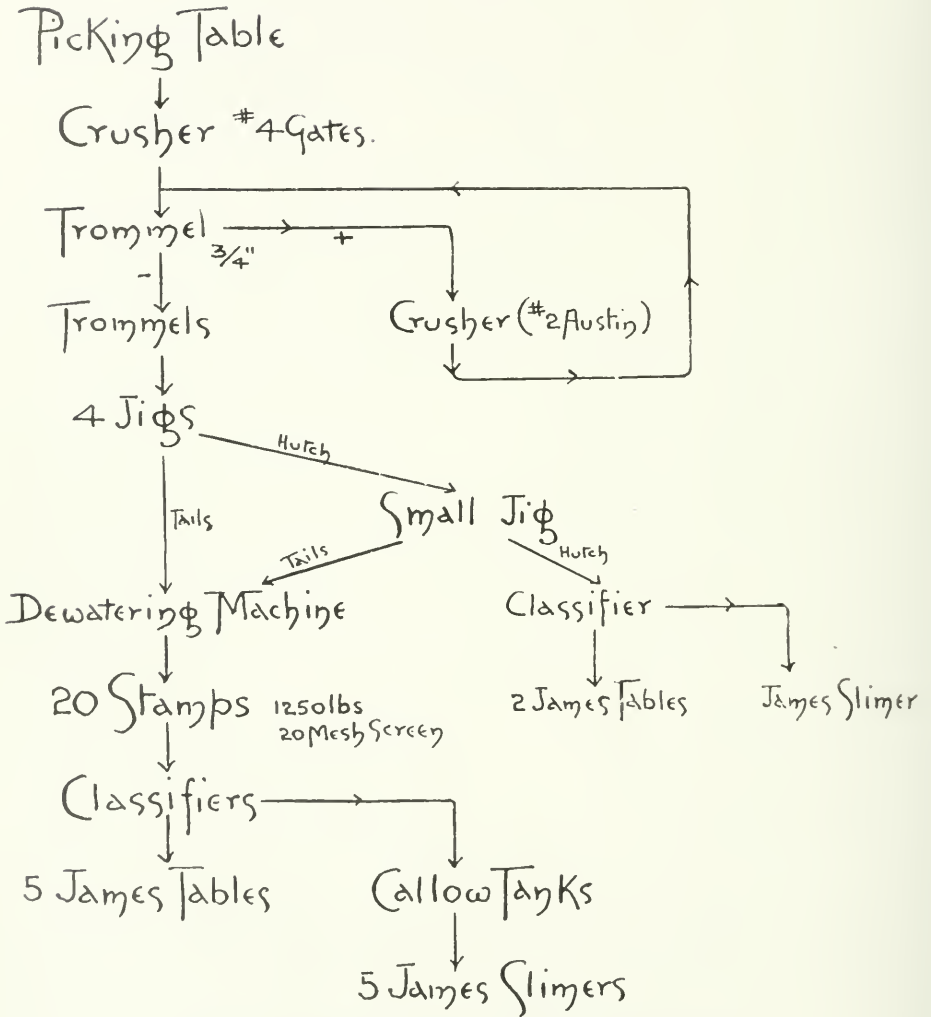 Picking Table
Crusher #4 Gates.
Trommel 3/4" +
-
Trommels
Crusher (#2 Austin)
4 Jigs
Hutch
Small Jig
Tails
Tails
Hutch
Dewatering Machine
Classifier
20 Stamps 1250 lbs
20 Mesh Screen
2 James Tables
James Slimer
Classifiers
5 James Tables
Callow Tanks
5 James Slimers